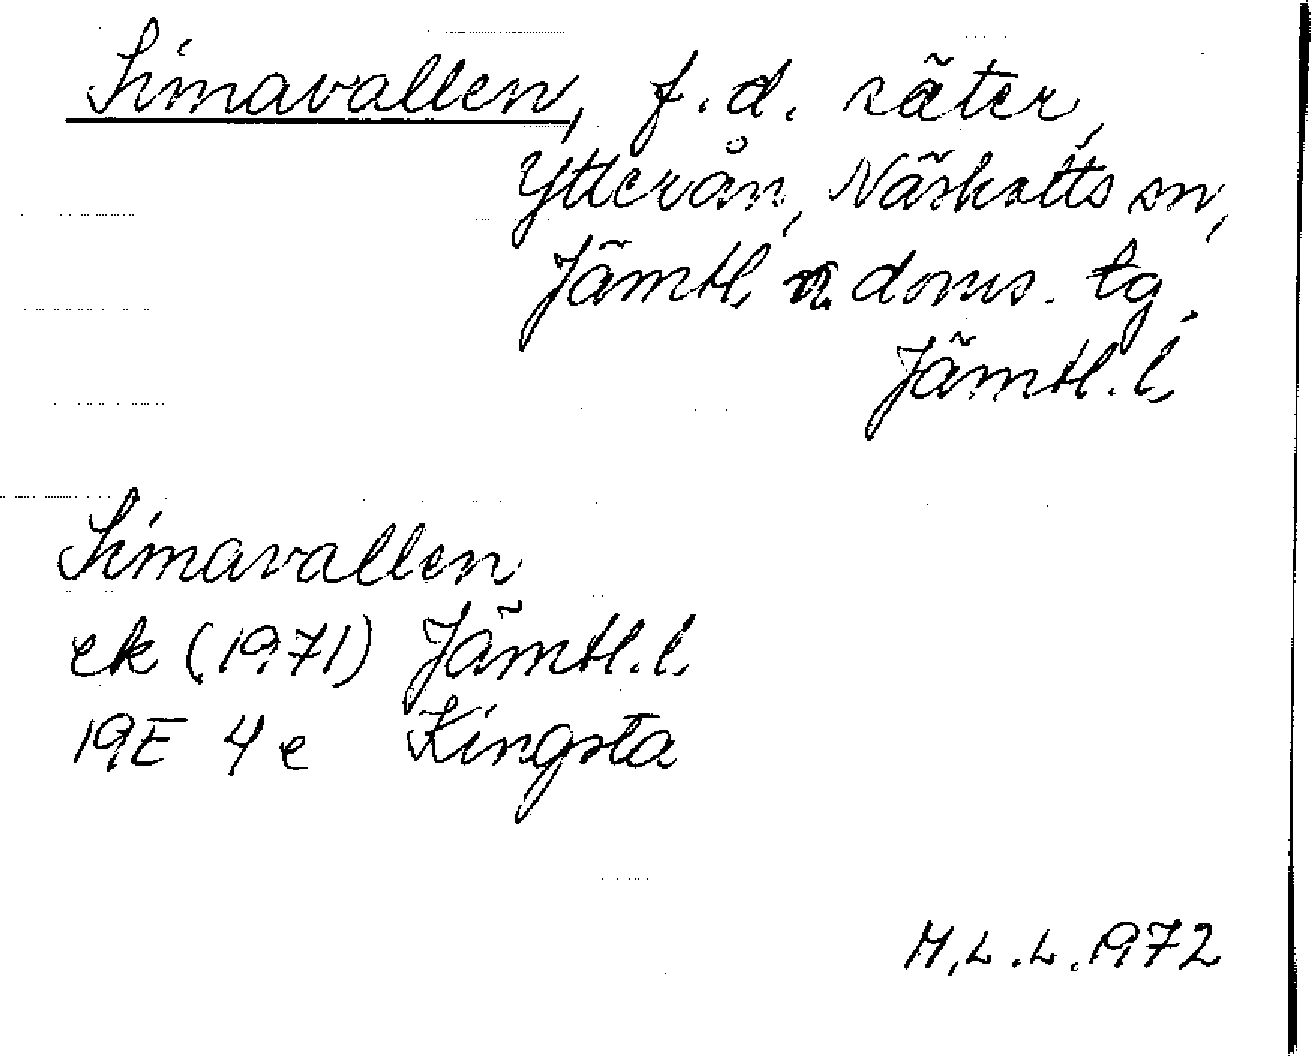 Simavallen, f.d. säter,
Ytterån, Näskotts sn,
Jämtl. n. doms. tg.
Jämtl. l.
Simavallen
ek (1971) Jämtl. l.
19E 4e Kingsta
M.L.L. 1972